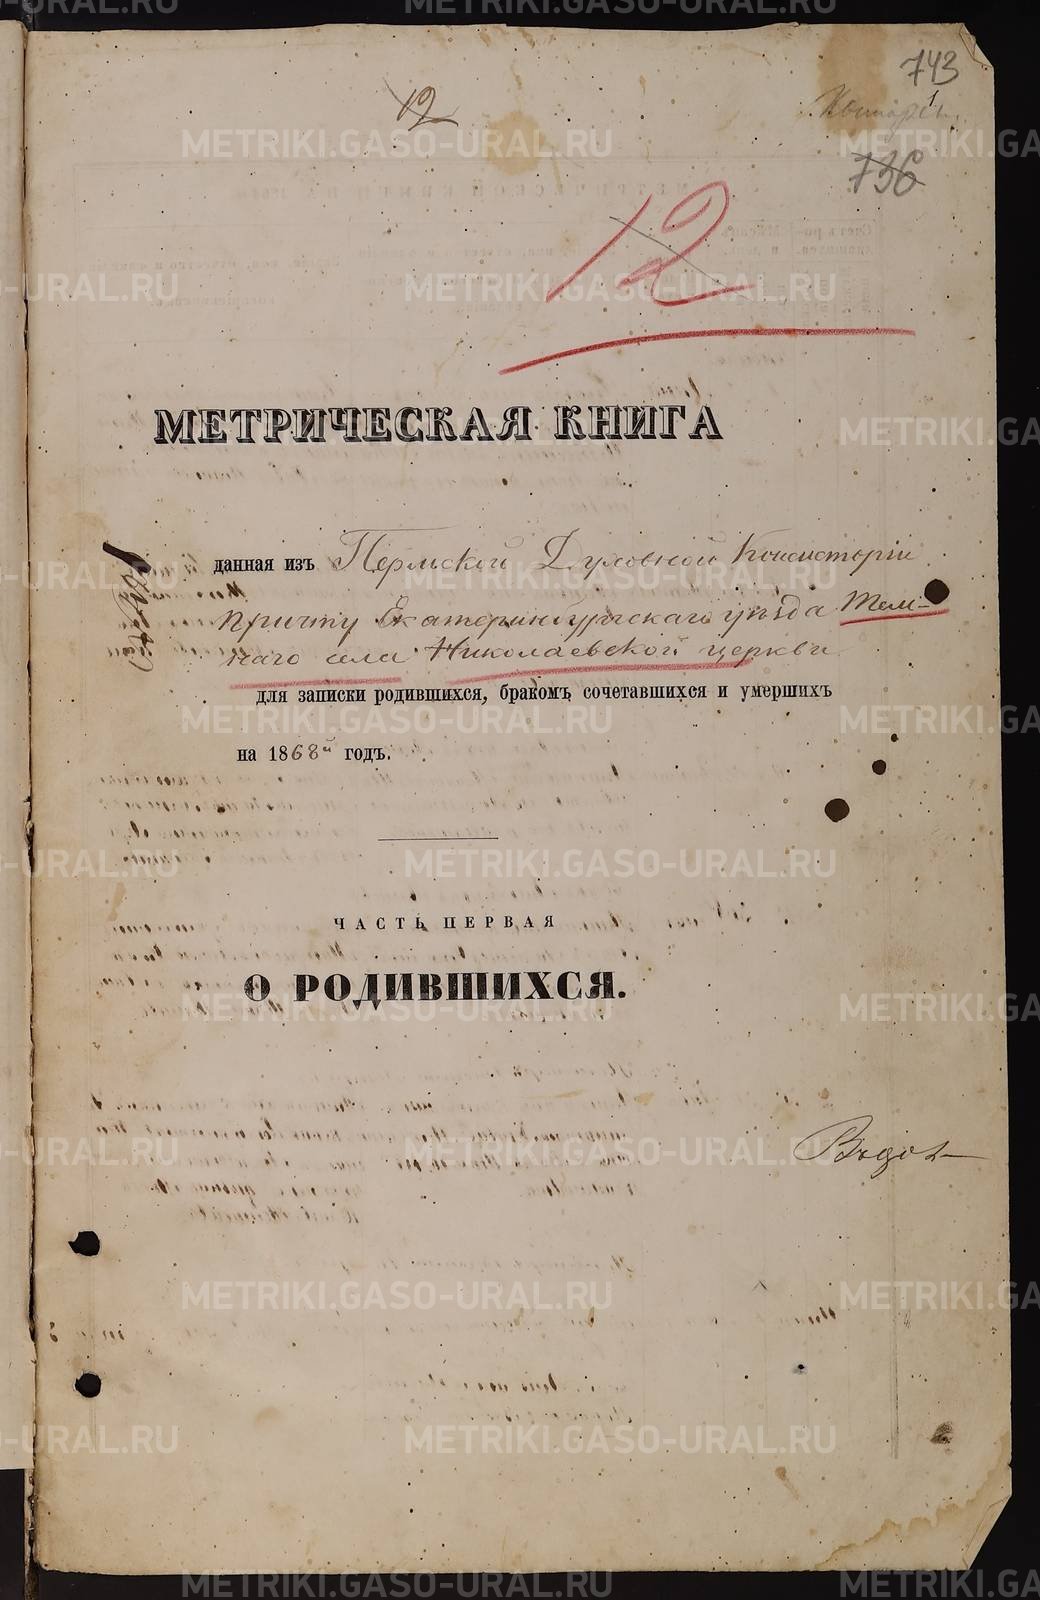 743
12
1
736
12
МЕТРИЧЕСКАЯ КНИГА
данная изъ Пермской Духовной Консисторіи
причту Екатеринбургскаго уѣзда Тем-
наго села Николаевской церкви
для записки родившихся, бракомъ сочетавшихся и умершихъ
на 1868й годъ.
ЧАСТЬ ПЕРВАЯ
О РОДИВШИХСЯ.
METRIKI.GASO-URAL.RU